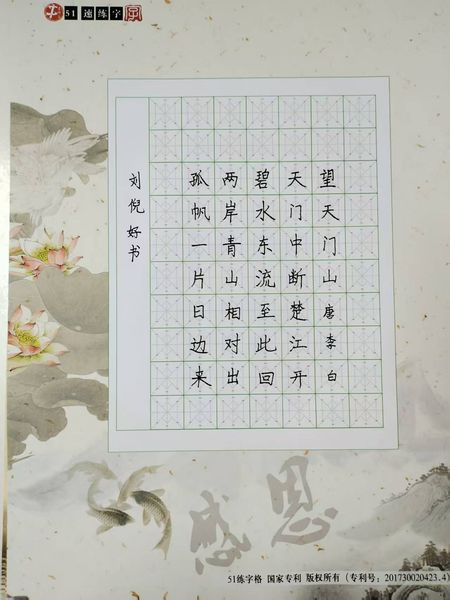 51速练字
望天门山唐李白
天门中断楚江开
碧水东流至此回
两岸青山相对出
孤帆一片日边来
刘倪好书
感恩
51练字格 国家专利 版权所有（专利号：201730020423.4）